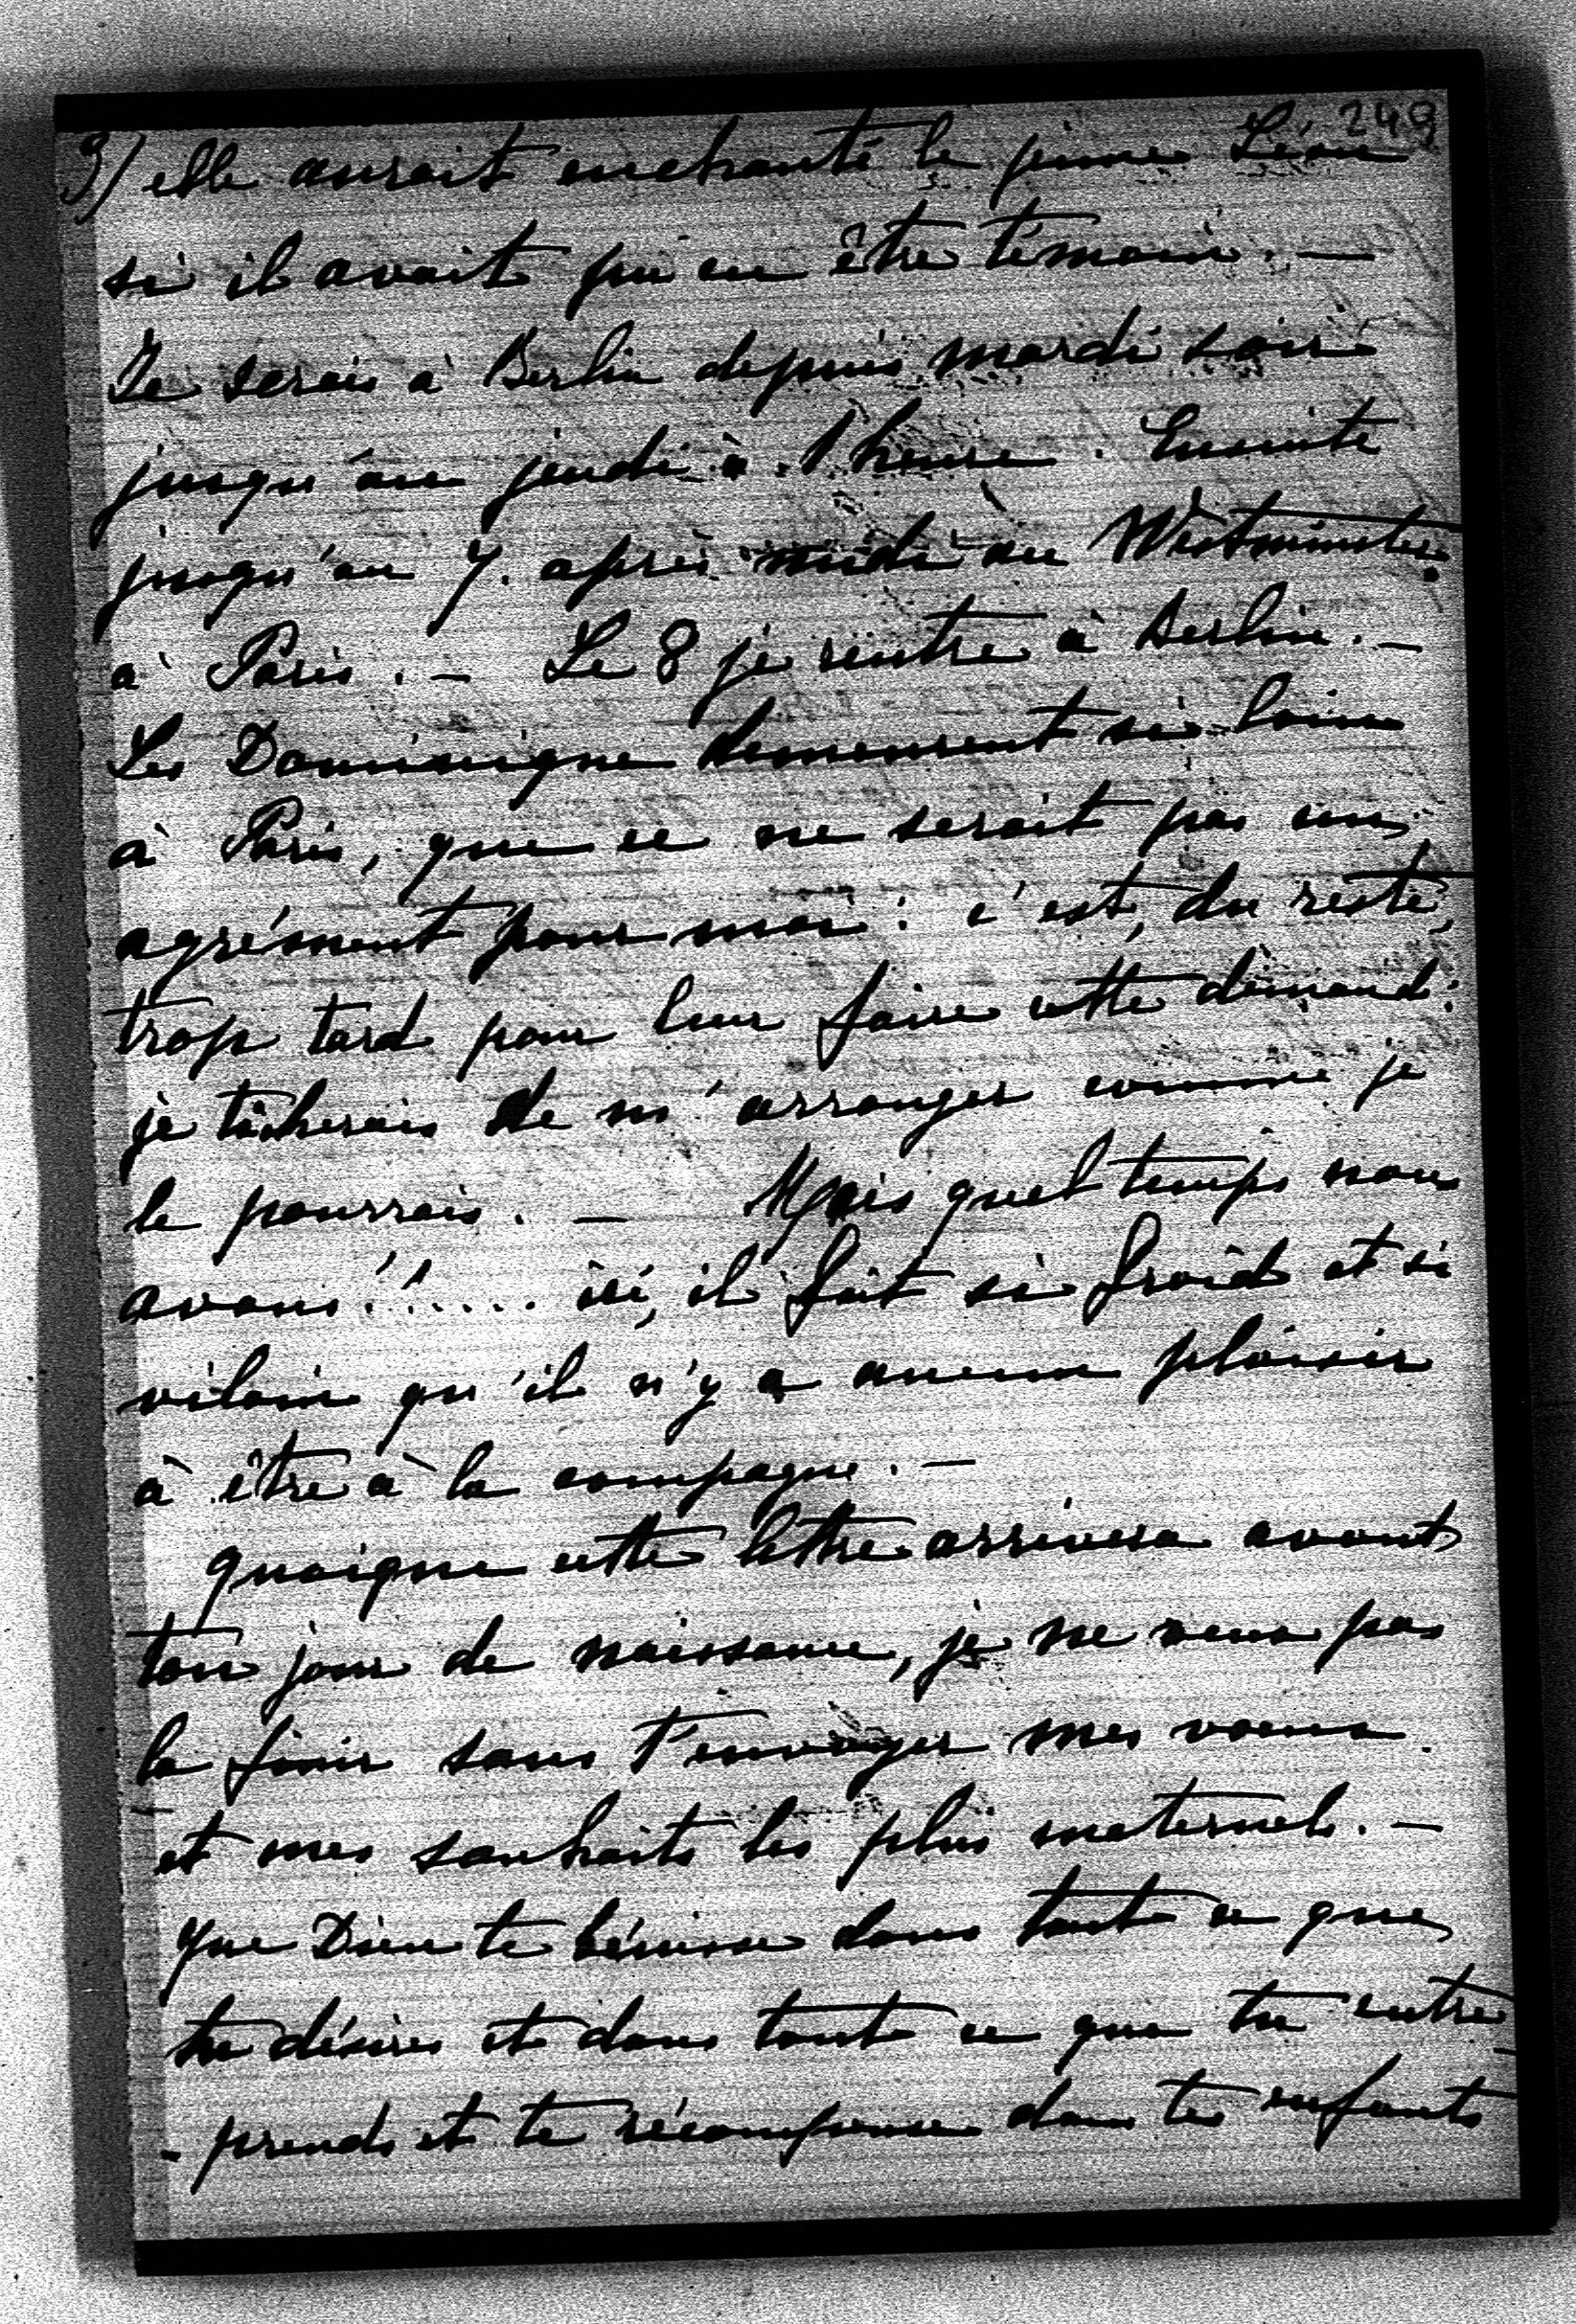 249
3/ elle aurait enchanté le jeune Léon
si il avait pu en être témoin. —
Je serais à Berlin depuis mardi soir
jusqu'au jeudi à 1 heure. Ensuite
jusqu'au 7. après midi au Westminster
à Paris. — Le 8 je rentre à Berlin. —
Les Dominique demeurent si loin
à Paris, que ce ne serait pas un
agrément pour moi : c'est, du reste,
trop tard pour leur faire cette demande :
je tâcherais de m'arranger comme je
le pourrais. — Mais quel temps nous
avons!!..... ici, il fait si froid et si
vilain qu'il n'y a aucun plaisir
à être à la campagne. —
quoique cette lettre arrivera avant
ton jour de naissance, je ne veux pas
la finir sans t'envoyer mes voeux
et mes souhaits les plus maternels. —
que Dieu te bénisse dans tout ce que
tu désires et dans tout ce que tu entre-
-prends et te récompense dans tes enfants